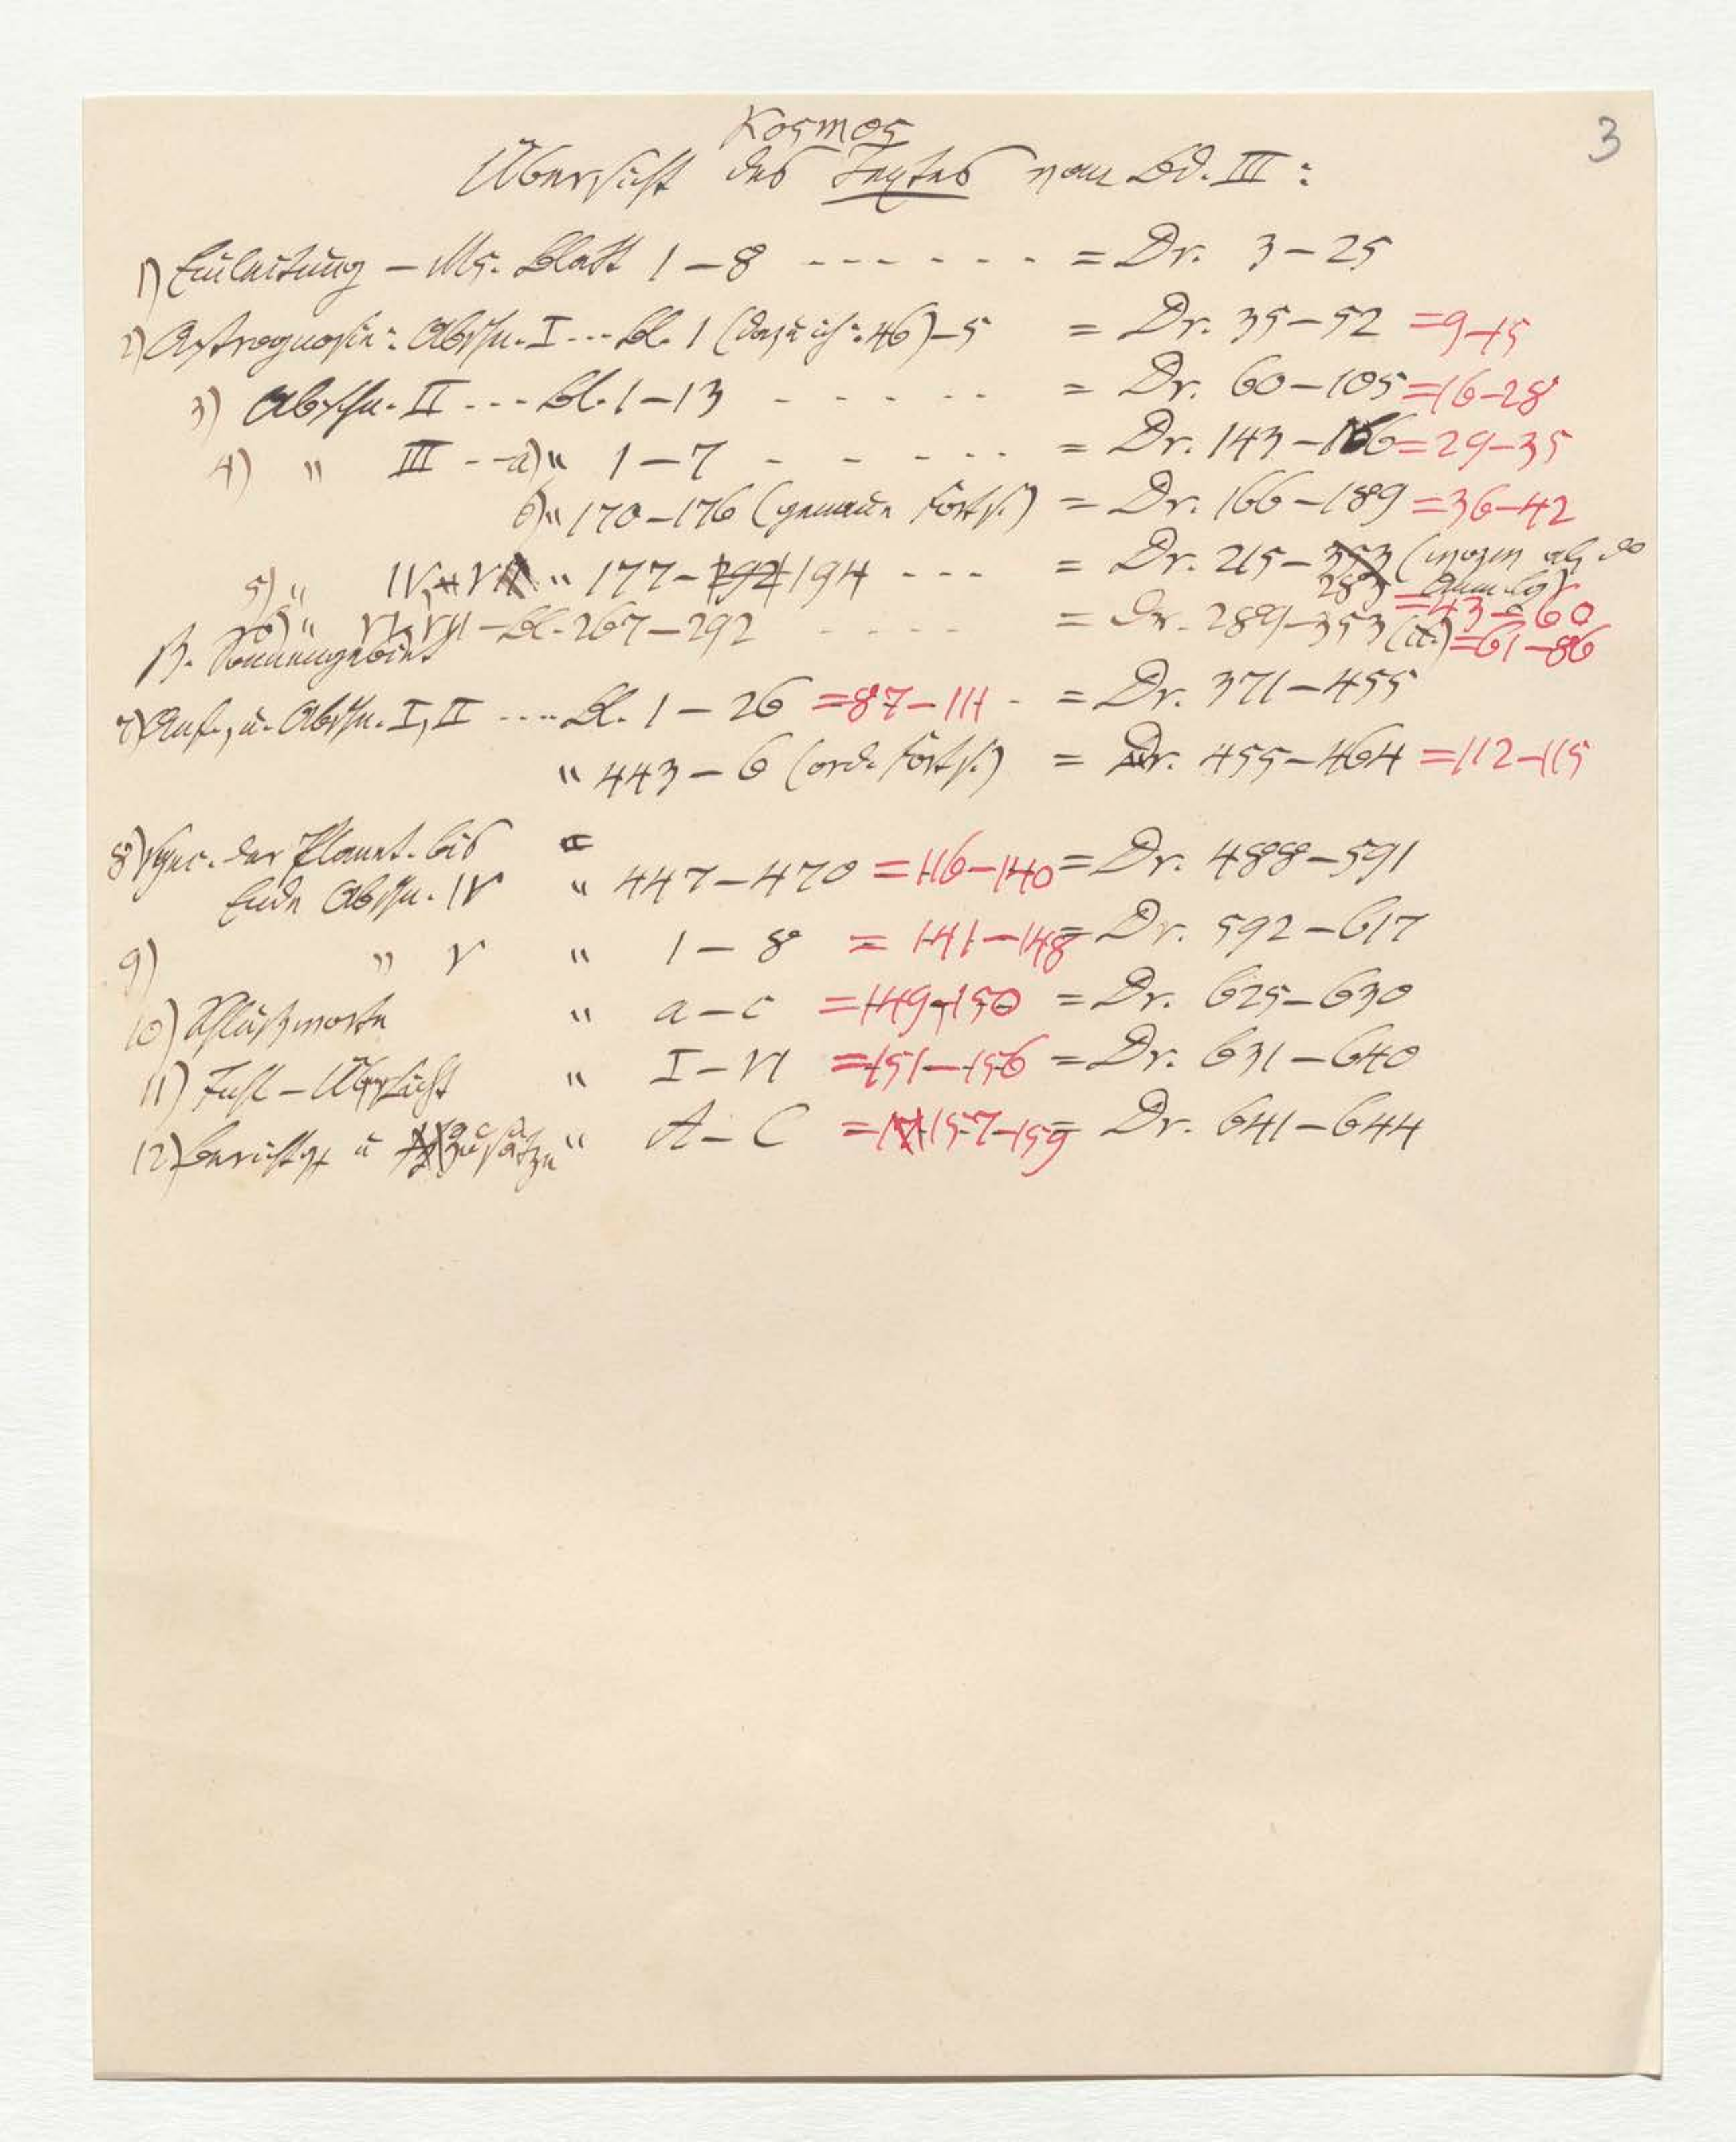 3
Kosmos
Übersicht des Textes von Bd. III:
1) Einleitung – Ms. Blatt 1–8 - - - - - - = Dr. 3–25
2) Astrognosie: Abschn. I ... Bl. 1 ( : 46)–5 = Dr. 35–52 =9–15
3) Abschn. II ... Bl. 1–13 - - - - - = Dr. 60–105 =16–28
4) " III - - a) " 1–7 - - - - - = Dr. 143–166 =29–35
b) " 170–176 (genaue Forts.) = Dr. 166–189 =36–42
5) " IV, V " 177–192 194 - - - = Dr. 215–353 (
283 =43–60
6) " VI, VII – Bl. 267–292 - - - - = Dr. 289–353 (it.) =61–86
β. Sonnengebiet
7) Anf., u. Abschn. I, II .... Bl. 1–26 =87–111 - = Dr. 371–455
" 443–6 (ord. Forts.) = Dr. 455–464 =112–115
8) Spec. der Planet. bis
Ende Abschn. IV " 447–470 =116–140 = Dr. 488–591
9) " V " 1–8 = 141–148 = Dr. 592–617
10) Schlußworte " a–c =149–150 = Dr. 625–630
11) Inh.-Übersicht " I–VI =151–156 = Dr. 631–640
12) Berichtgg u Zusätze " A–C = 157–159 = Dr. 641–644